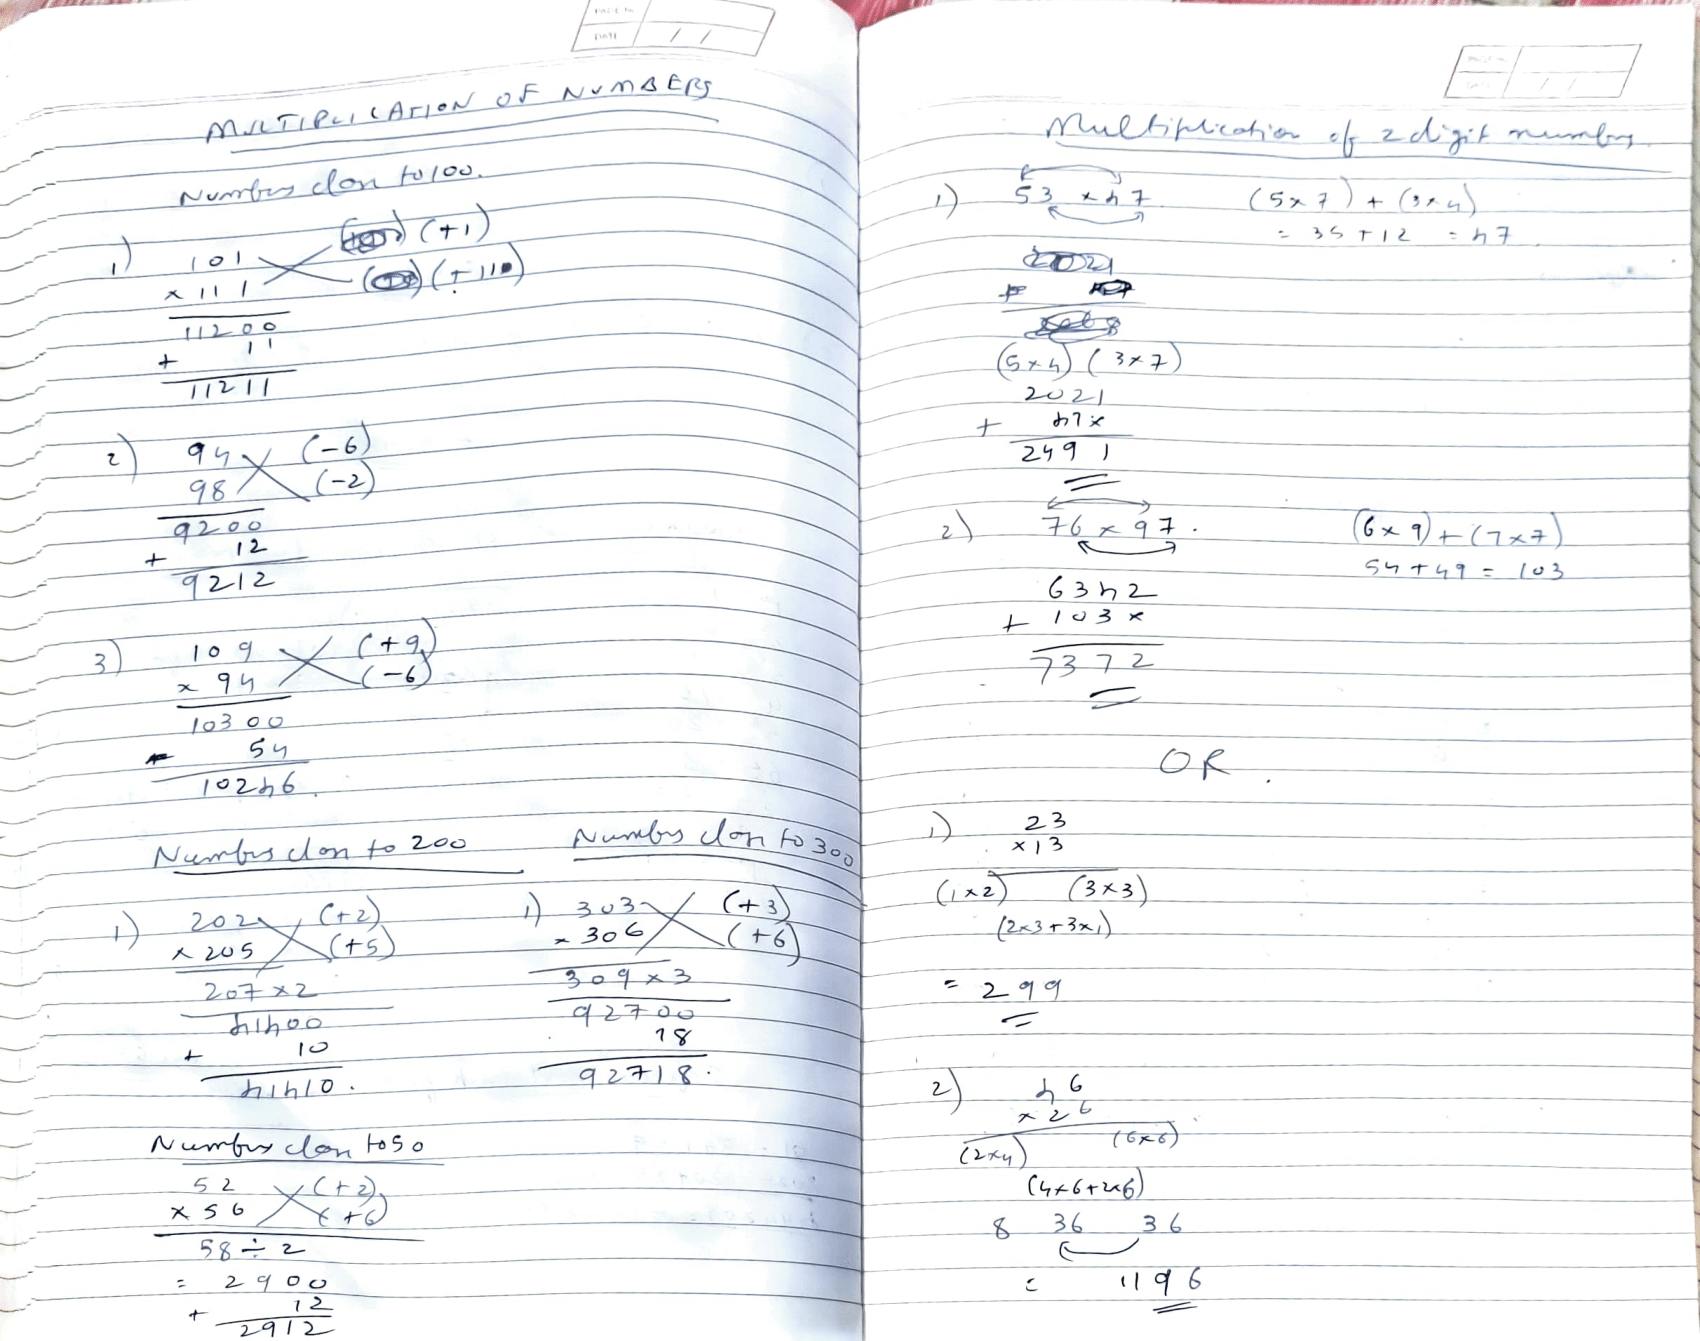 PAGE No
DATE / /
MULTIPLICATION OF NUMBERS
Numbers close to 100.
1)
101 (+1)
x 111 (+11)
11200
+ 11
11211
2)
94 (-6)
98 (-2)
9200
+ 12
9212
3)
109 (+9)
x 94 (-6)
10300
- 54
10246.
Numbers close to 200
1)
202 (+2)
x 205 (+5)
207 x 2
41400
+ 10
41410.
Numbers close to 300
1)
303 (+3)
x 306 (+6)
309 x 3
92700
18
92718.
Numbers close to 50
52 (+2)
x 56 (+6)
58 ÷ 2
= 2900
+ 12
2912
Multiplication of 2 digit numbers
1) 53 x 47 (5x7) + (3x4)
= 35 + 12 = 47
(5x4) (3x7)
2021
+ 47x
2491
2) 76 x 97. (6x9) + (7x7)
54 + 49 = 103
6342
+ 103x
7372
OR.
1) 23
x 13
(1x2) (3x3)
(2x3+3x1)
= 299
2) 46
x 26
(2x4) (6x6)
(4x6+2x6)
8 36 36
= 1196